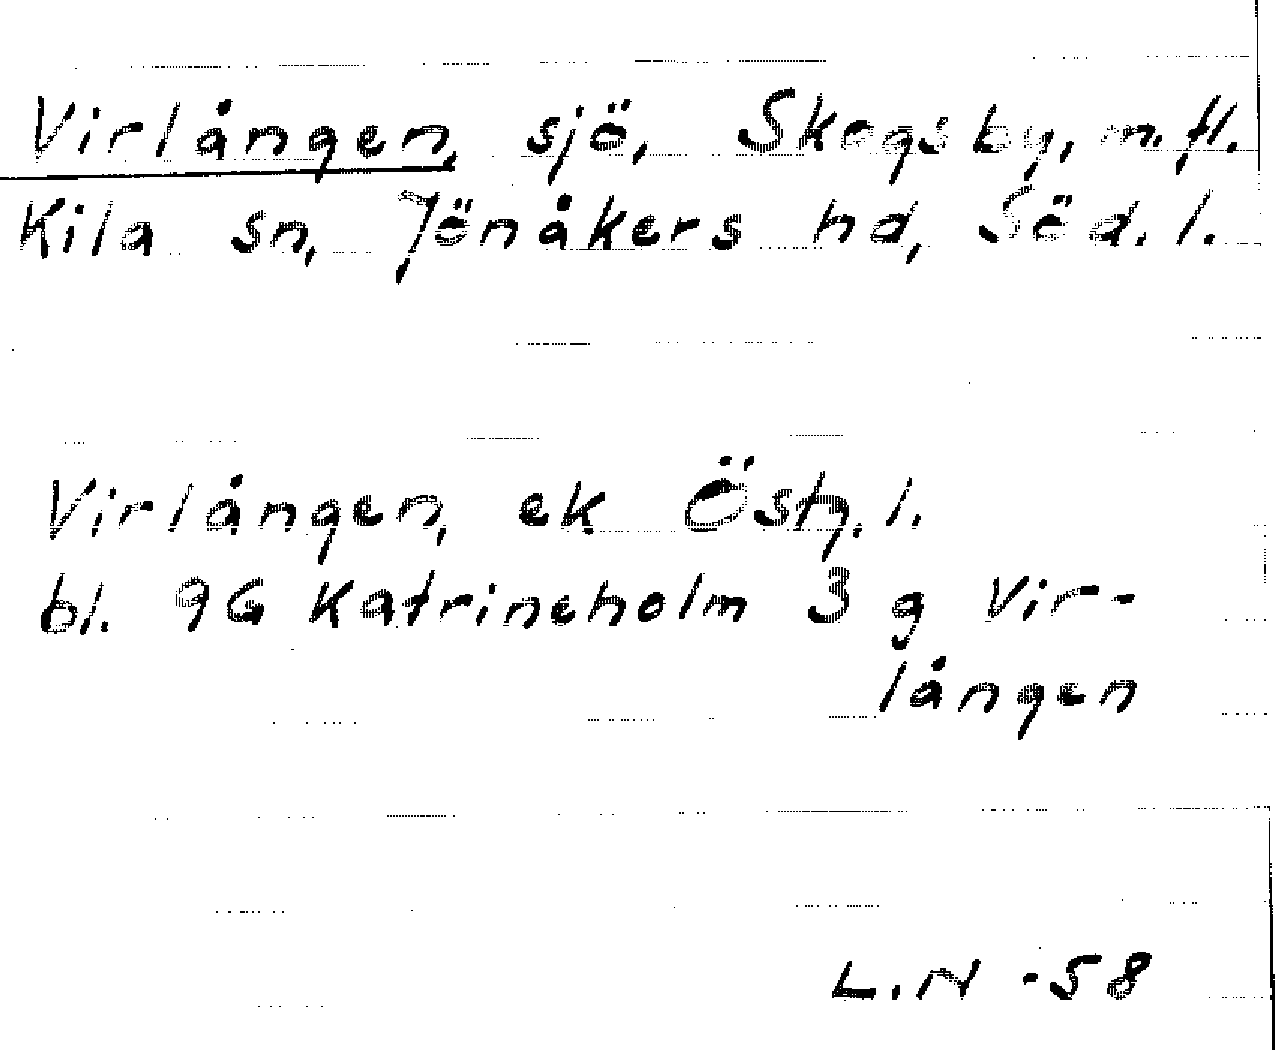 Virlången, sjö, Skogsby, m.fl.
Kila sn, Jönåkers hd, Söd. l.
Virlången, ek Östg. l.
bl. 9G Katrineholm 3 g Vir-
lången
L.N -58